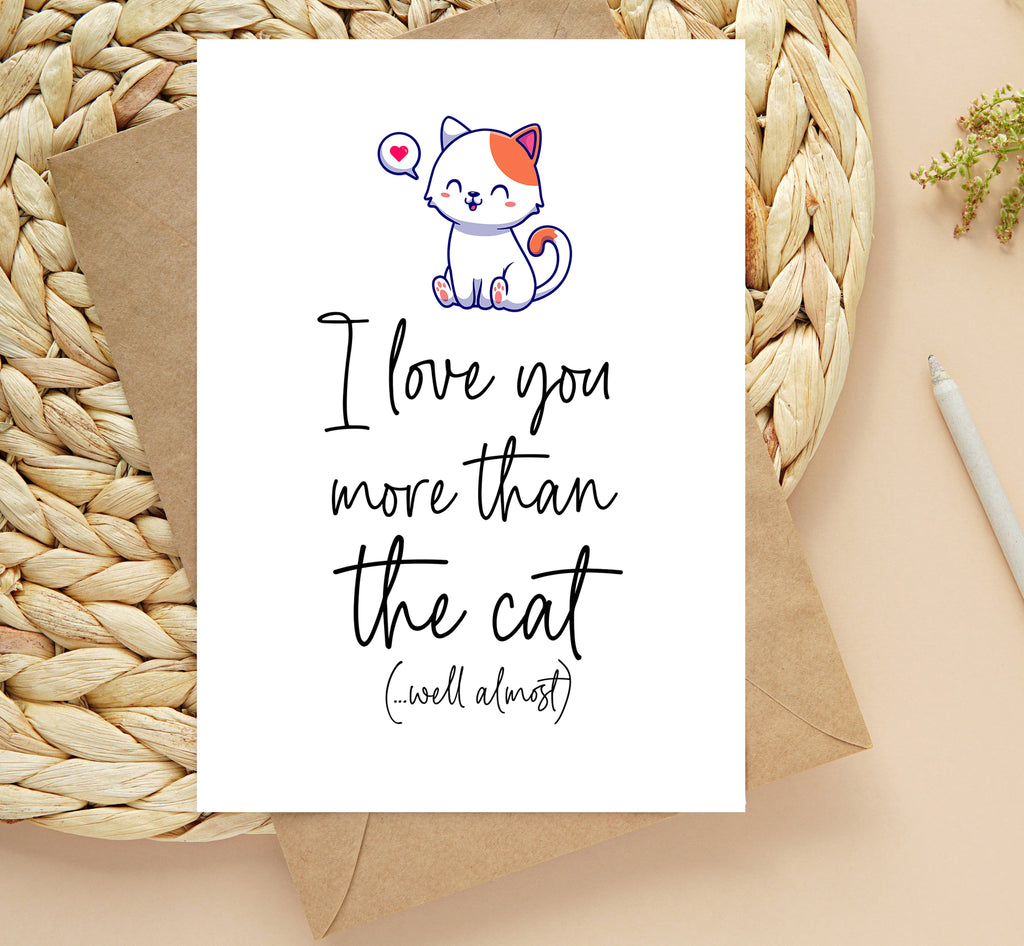 I love you
more than
the cat
(...well almost)